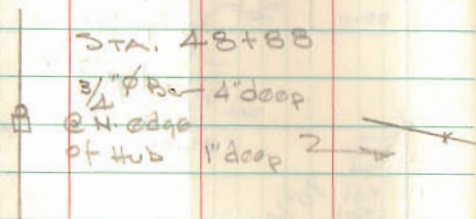 STA. 48+88
3/4"Ø Bar 4" deep
@ N. edge
of Hub 1" deep